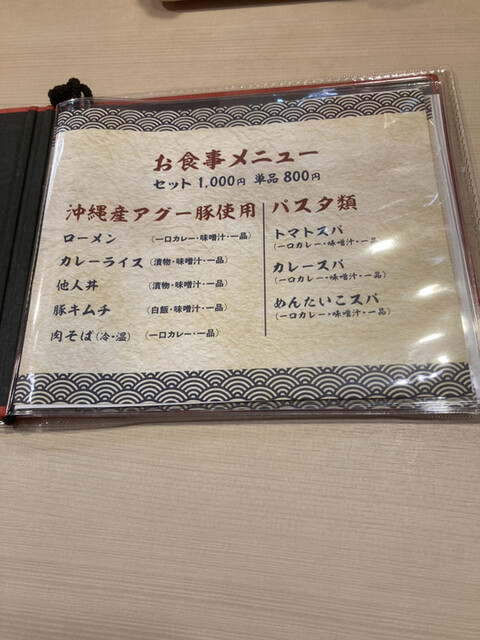 お食事メニュー
セット 1,000円 単品 800円
沖縄産アグー豚使用
ローメン （一口カレー・味噌汁・一品）
カレーライス （漬物・味噌汁・一品）
他人丼 （漬物・味噌汁・一品）
豚キムチ （白飯・味噌汁・一品）
肉そば（冷・温） （一口カレー・一品）
パスタ類
トマトスパ
（一口カレー・味噌汁・一品）
カレースパ
（一口カレー・味噌汁・一品）
めんたいこスパ
（一口カレー・味噌汁・一品）